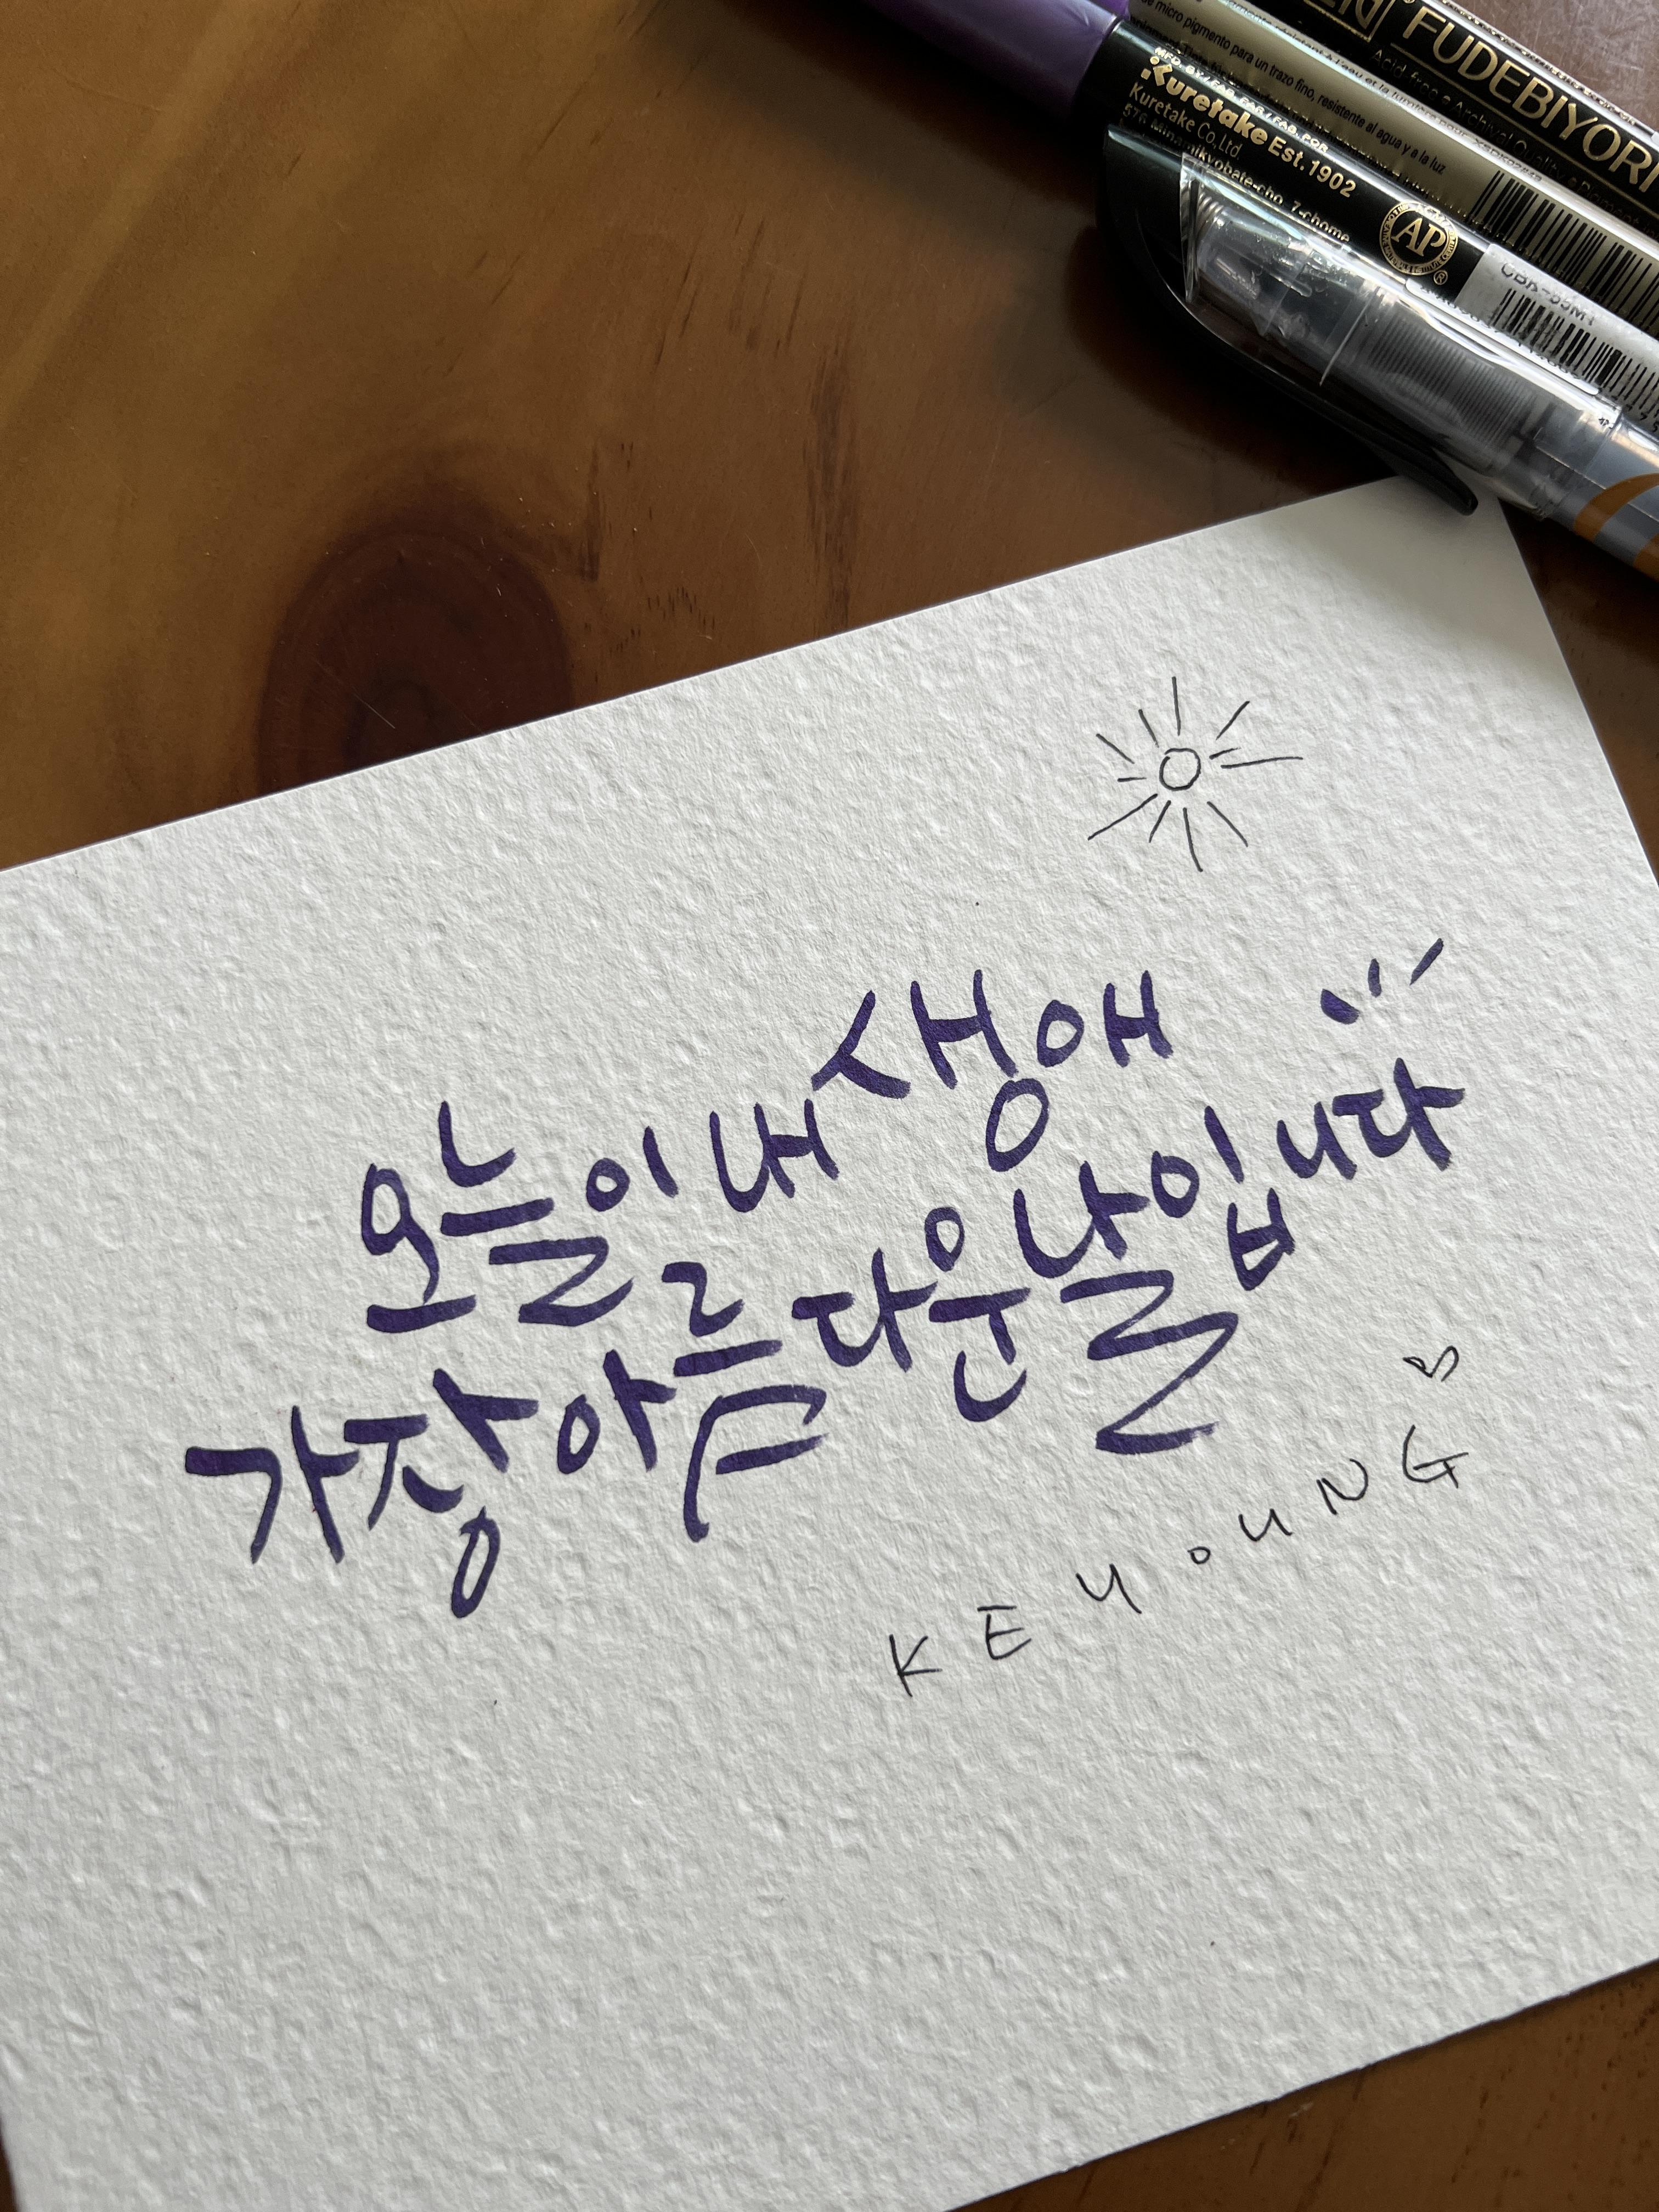 FUDEBIYORI
Acid-free • Archival Quality
micro pigmento para un trazo fino, resistente al agua y a la luz
Kuretake Est. 1902
Kuretake Co., Ltd.
576 Minamikyobate-cho, 7-chome
AP
CBK-55MT
오늘이 내 생애
가장 아름다운 날입니다
KEYOUNG